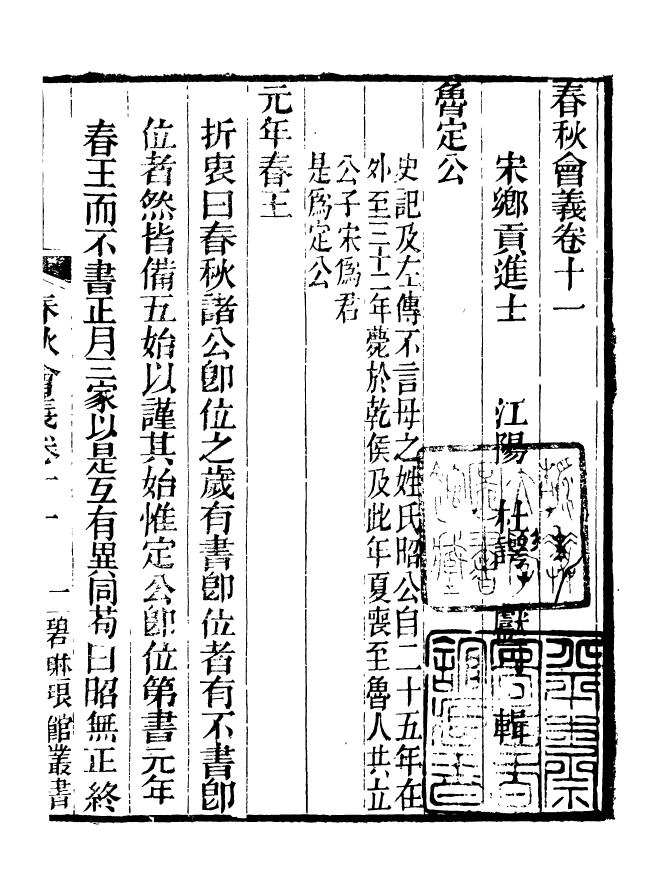 春秋會義卷十一
宋鄉貢進士 江陽 杜諤 獻 輯
魯定公
史記及左傳不言母之姓氏昭公自二十五年在
外至三十二年薨於乾侯及此年夏喪至魯人共立
公子宋爲君
是爲定公
元年春王
折衷曰春秋諸公卽位之歲有書卽位者有不書卽
位者然皆備五始以謹其始惟定公卽位第書元年
春王而不書正月三家以是互有異同苟曰昭無正終
春秋會義卷十一 一 碧琳琅館叢書